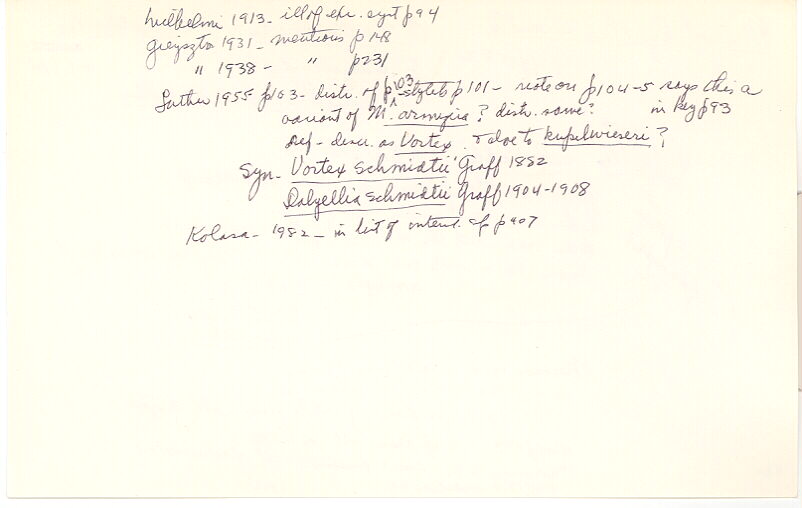 Wilhelmi 1913 - ill of exc. syst p 94
Gieysztor 1931 - mentions p 148
" 1938 - " p 231
Luther 1955 p 103 - distr. of p 103 stylets p 101 - note on p 104-5 says this a
variant of M. armigera? distr. same? in key p 93
ref - descr. as Vortex. & close to kupelwieseri?
Syn - Vortex schmidtii Graff 1882
Dalyellia schmidtii Graff 1904-1908
Kolasa - 1982 - in list of intenst. sp p 407